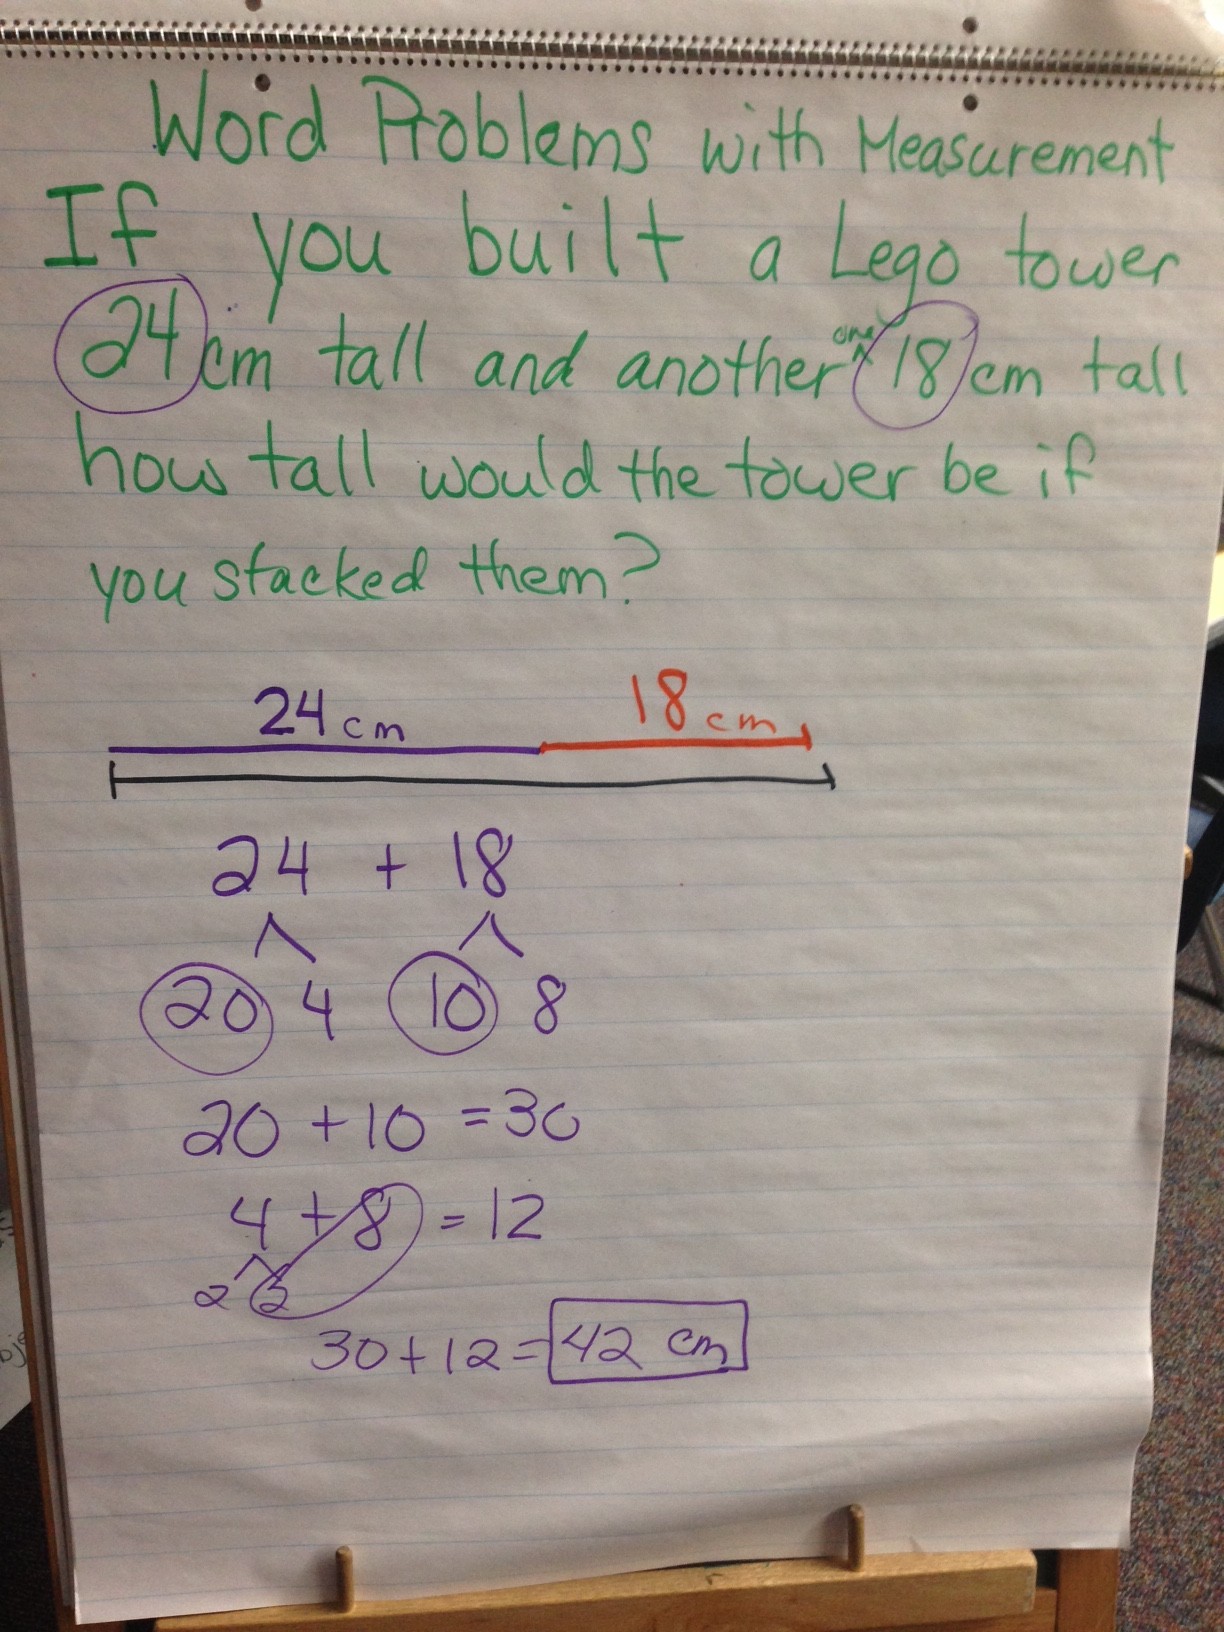 Word Problems with Measurement
If you built a Lego tower
24 cm tall and another one 18 cm tall
how tall would the tower be if
you stacked them?
24 cm 18 cm
24 + 18
20 4 10 8
20 + 10 = 30
4 + 8 = 12
2 2
30 + 12 = 42 cm